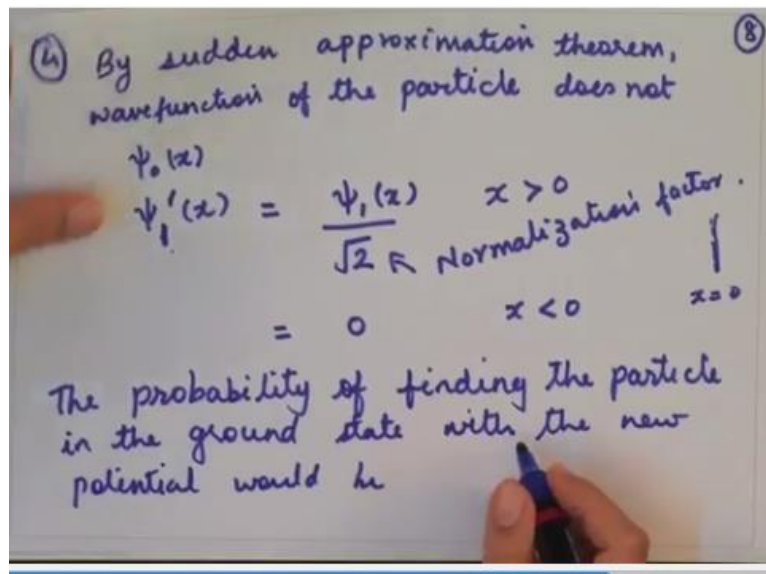 ④ By sudden approximation theorem, ⑧
wavefunction of the particle does not
ψ₀(x)
ψ₁'(x) = ψ₁(x)/√2 x > 0
↖ Normalization factor.
= 0 x < 0 x = 0
The probability of finding the particle
in the ground state with the new
potential would be